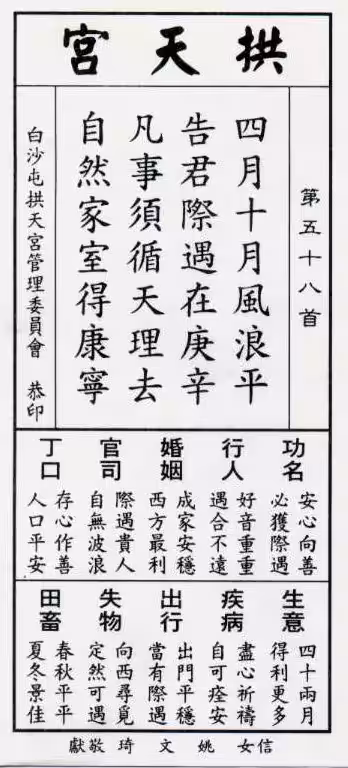 拱天宮
第五十八首
四月十月風浪平
告君際遇在庚辛
凡事須循天理去
自然家室得康寧
白沙屯拱天宮管理委員會 恭印
功名
安心向善
必獲際遇
行人
好音重重
遇合不遠
婚姻
成家安穩
西方最利
官司
際遇貴人
自無波浪
丁口
存心作善
人口平安
生意
四十兩月
得利更多
疾病
盡心祈禱
自可痊安
出行
出門平穩
當有際遇
失物
向西尋覓
定然可遇
田畜
春秋平平
夏冬景佳
信女 姚文琦 敬獻